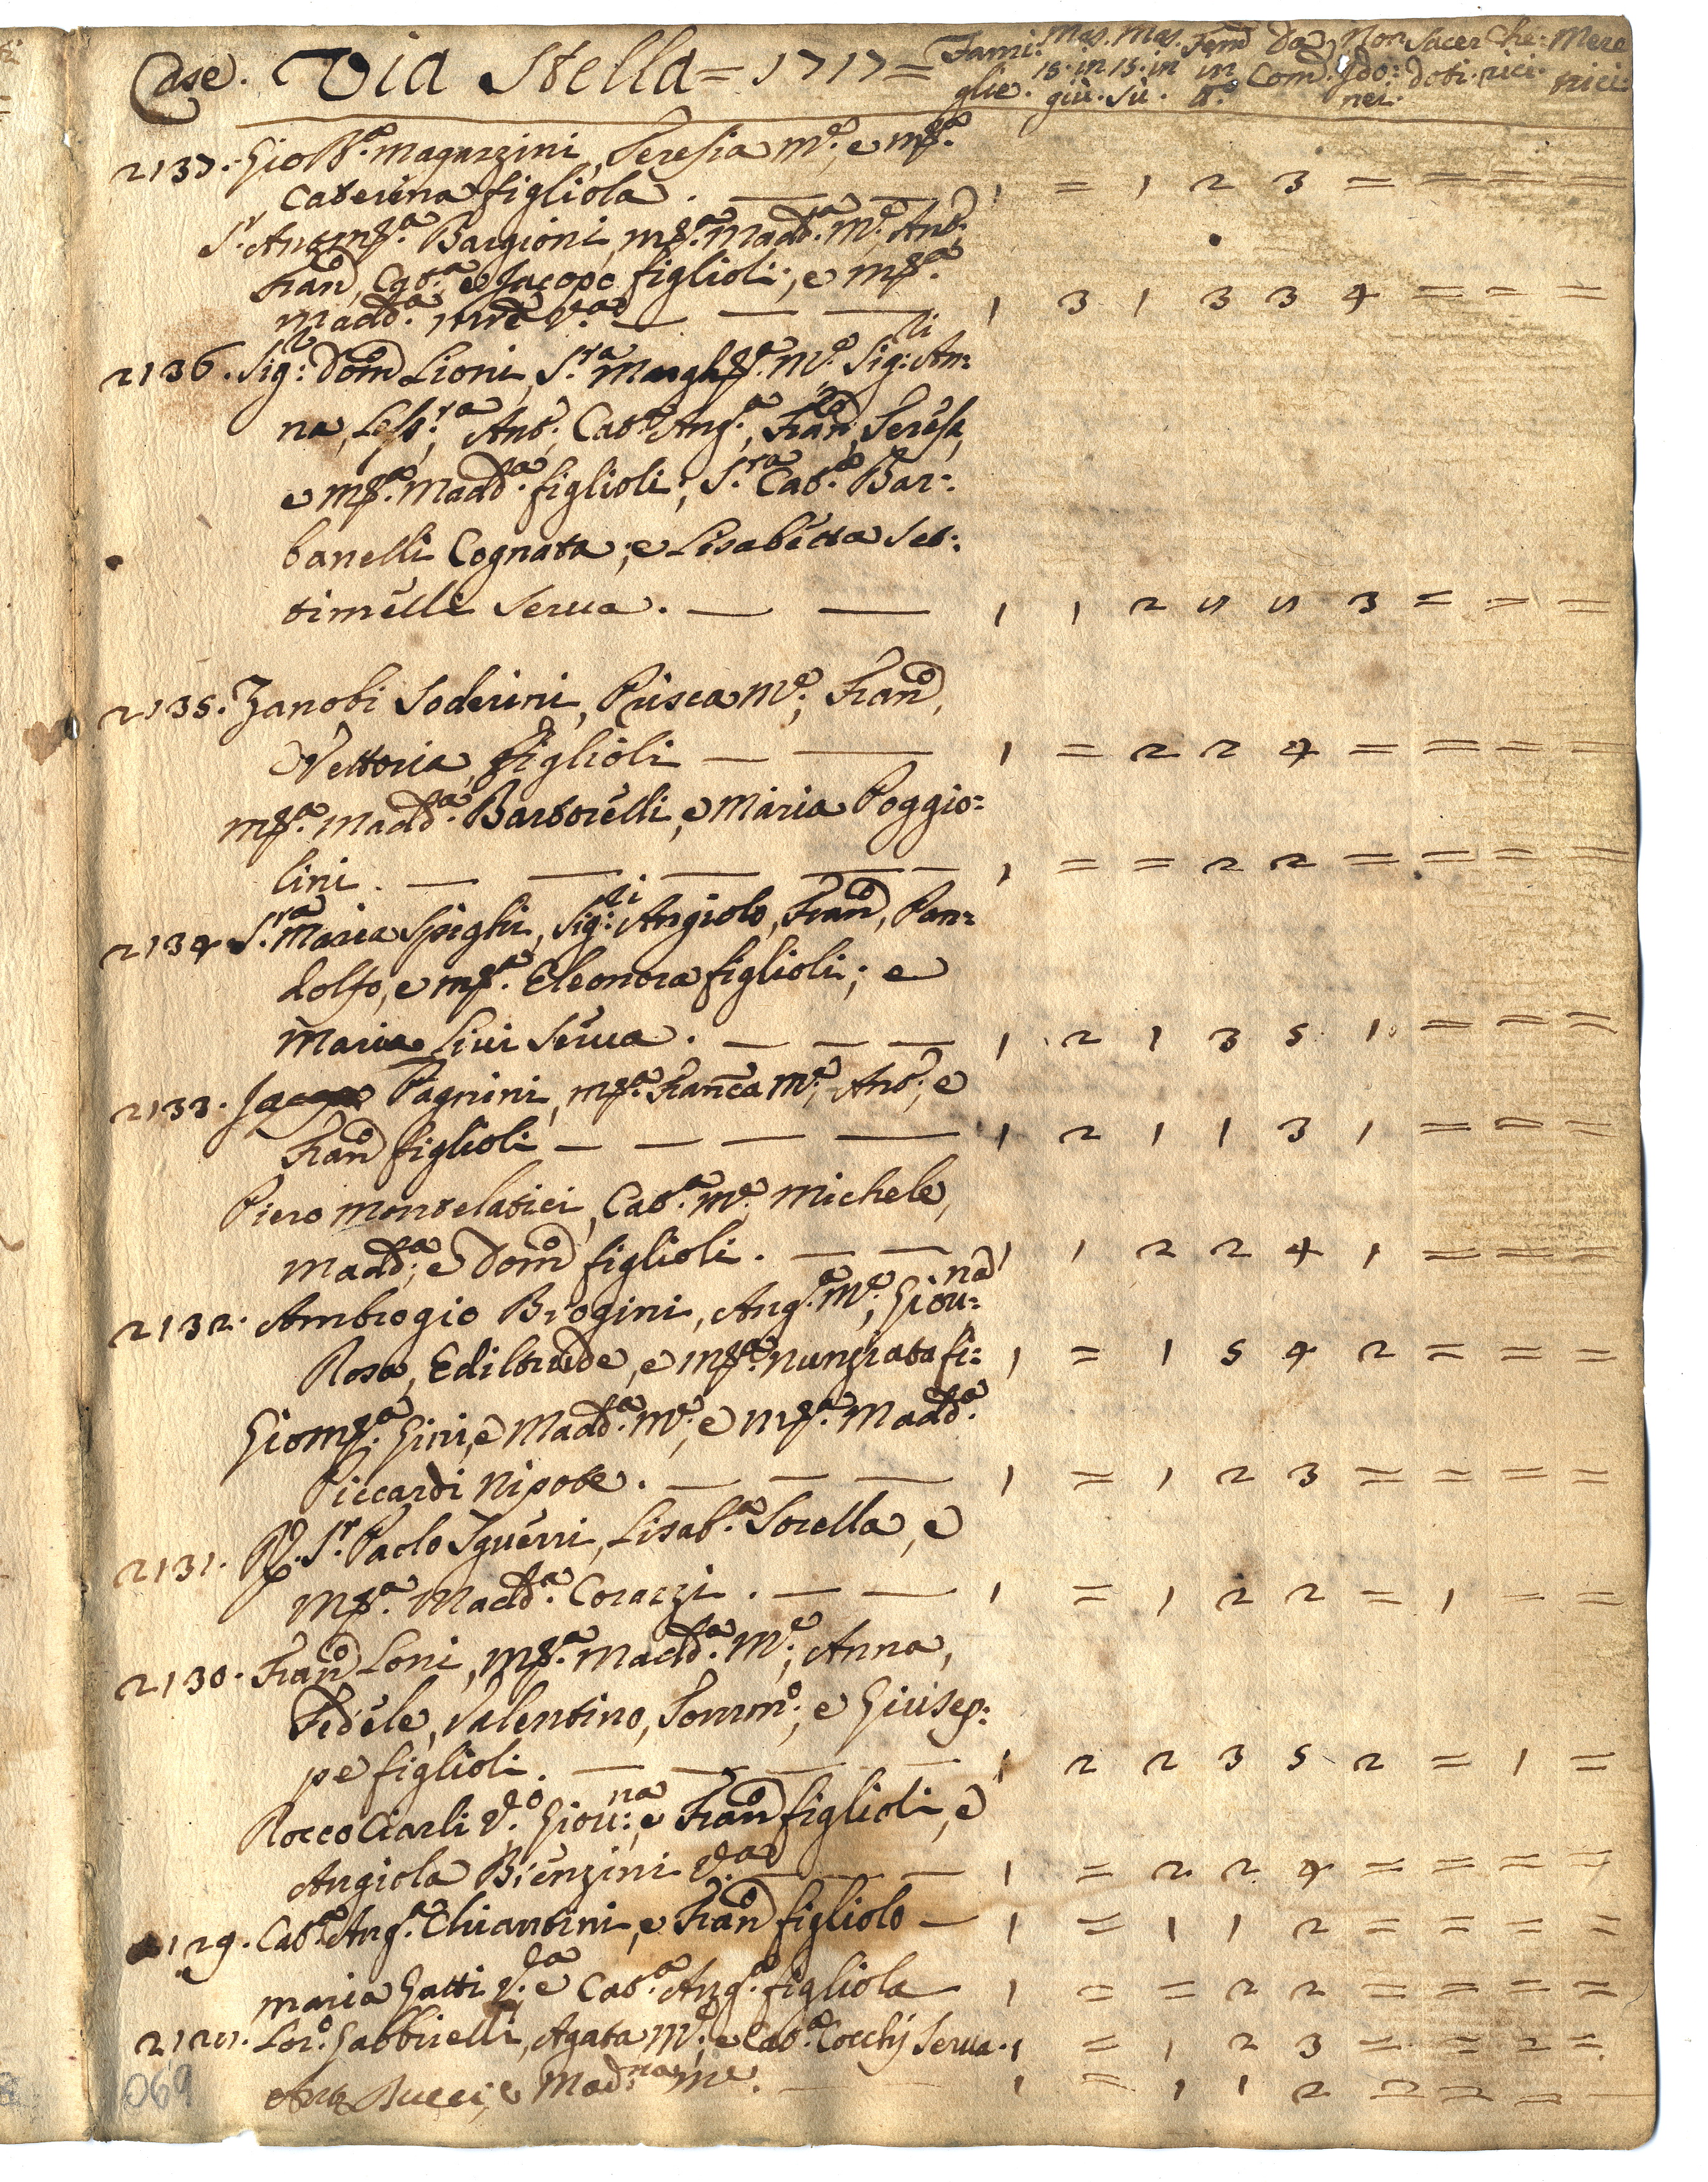 Case. Via Stella = 1717 = Fami: Mas. Mas. Fem̃ Da Non Sacer Che: Mere
glie. 15. in 15. in in Com̃. Ido: doti. rici. trici.
giù. Sù. tt.º nei.
2137. Gio Bª. Magazzini, Teresia M.e, e Mª.
Caterina figliola. — — 1 = 1 2 3 = = = =
S.r Ant. Mª. Bargioni, Mª. Madd.ª M.e, Ant.,
Fran.º, Cat.ª e Jacopo figlioli; e Mª.
Madd.ª V.ª — — — 1 3 1 3 3 4 = = =
2136. Sig.r Dom.º Lioni, S.ra Margh.ª M.e Sig:li An=
na, Ant., Cat.ª Ang.ª, Fran.ª, Teresa,
e Mª. Madd.ª figlioli; S.ra Cat.ª Bar=
banelli Cognata; e Lisabetta Set=
timelli Serua. — — 1 1 2 8 8 3 = = =
2135. Zanobi Soderini, Prisca M.e, Fran.º,
Vettoria figlioli — — 1 = 2 2 4 = = = =
Mª. Madd.ª Bartorelli, e Maria Poggio=
lini. — — — — — 1 = = 2 2 = = = =
2134 S.ra Maria Spighi, Sig:li Angiolo, Fran.º, Pan=
dolfo, e Mª. Eleonora figlioli; e
Maria Livi Serua. — — — 1 2 1 3 5 1 = = =
2133. Jacopo Pagnini, Mª. Franca M.e, Ant.; e
Fran.º figlioli — — — — 1 2 1 1 3 1 = = =
Piero Montelatici, Cat.ª M.e, Michele,
Madd.ª; e Dom.º figlioli. — — 1 1 2 2 4 1 = = =
2132. Ambrogio Brogini, Ang.ª M.e, Giou:na
Rosa, Ediltrude, e Mª. Nunziata fi: 1 = 1 5 4 2 = = =
Gio Mª. Gini, e Madd.ª M.e, e Mª. Madd.ª
Piccardi Nipote. — — — 1 = 1 2 3 = = = =
2131. R. S.r Paolo Sguerri, Lisab.ª Sorella, e
Mª. Madd.ª Corazzi. — — 1 = 1 2 2 = 1 = =
2130. Fran.º Loni, Mª. Madd.ª M.e, Anna,
Fedele, Valentino, Tomm.º, e Giusep=
pe figlioli. — — — — 1 2 2 3 5 2 = 1 =
Rocco Ciarli V.º Giou:na e Fran.º figlioli, e
Angiola Bienzini V.ª — — — 1 = 2 2 4 = = = =
2129. Cat.ª Ang.ª Chiantini, e Fran.º figliolo — 1 = 1 1 2 = = = =
Maria Gatti V.ª e Cat.ª Ang.ª figliola 1 = = 2 2 = = = =
2128. Lor.º Gabbrielli, Agata M.e, e Cat.ª Cocchj Serua. 1 = 1 2 3 = = = =
Bucci, e Mad:na M.e. — — 1 = 1 1 2 = = = =
069